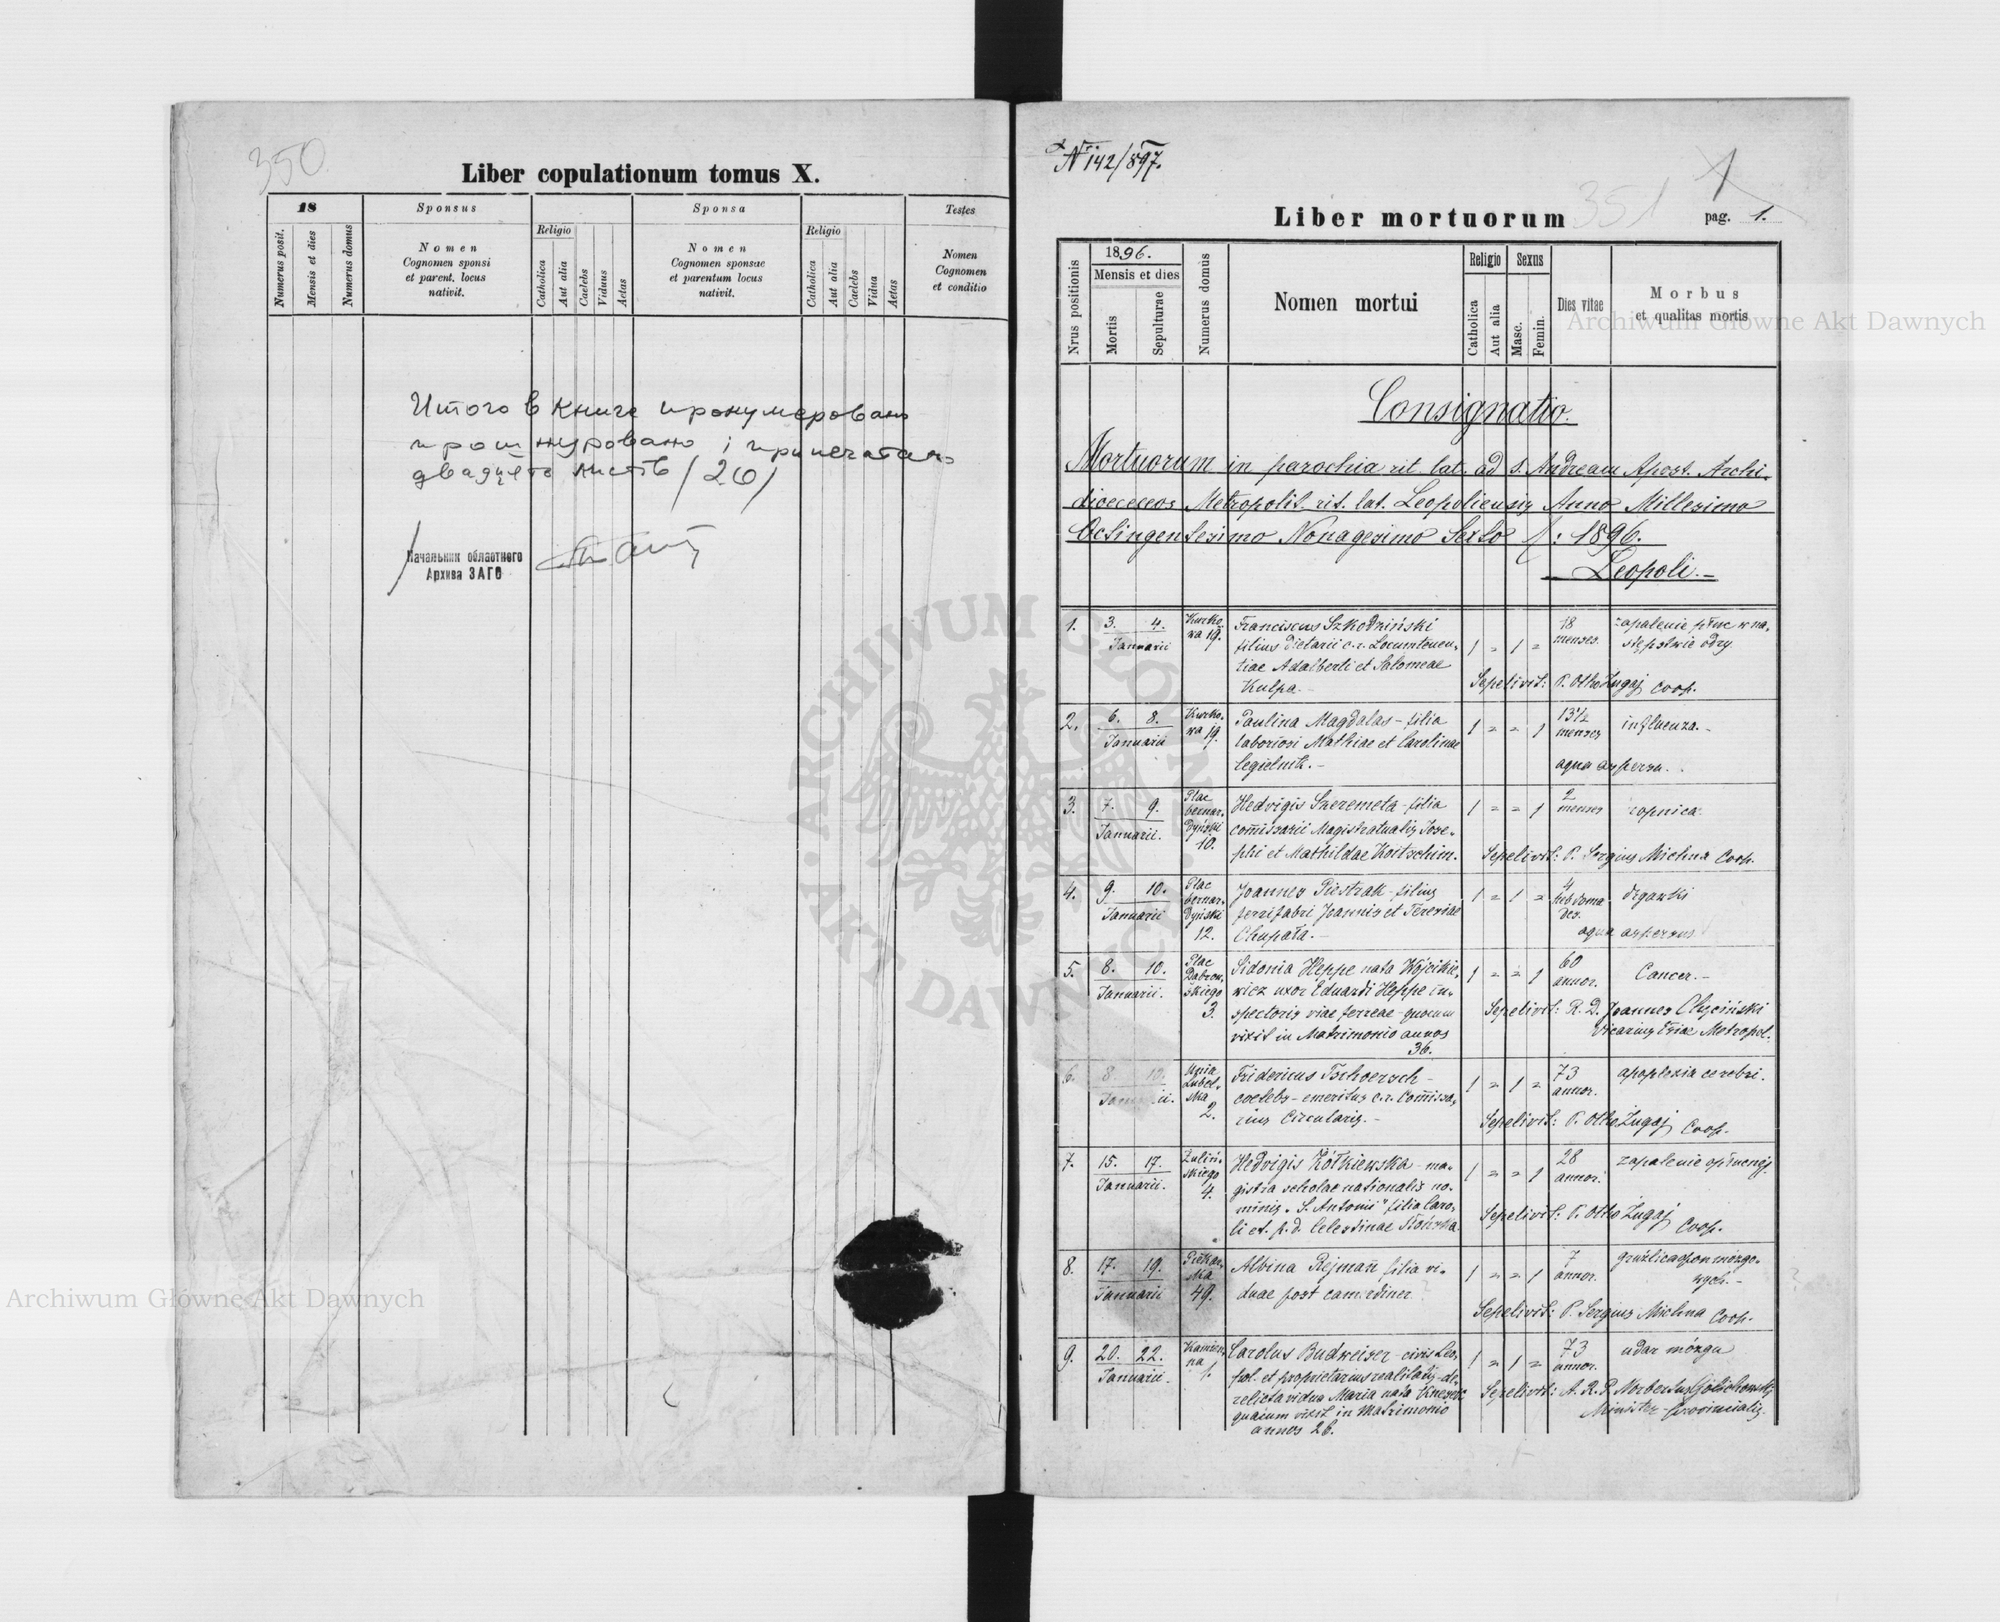 350
Liber copulationum tomus X.
18
Sponsus
Sponsa
Testes
Religio
Religio
Numerus posit.
Mensis et dies
Numerus domus
Nomen
Cognomen sponsi
et parent. locus
nativit.
Catholica
Aut alia
Caelebs
Viduus
Aetas
Nomen
Cognomen sponsae
et parentum locus
nativit.
Catholica
Aut alia
Caelebs
Vidua
Aetas
Nomen
Cognomen
et conditio
Итого в книге пронумеровано
прошнуровано і припечатано
двадцять листів /20/
Начальник областного
Архива ЗАГС
N 142/897.
351
1
Liber mortuorum
pag. 1.
Nrus positionis
1896.
Mensis et dies
Mortis
Sepulturae
Numerus domus
Nomen mortui
Religio
Catholica
Aut alia
Sexus
Masc.
Femin.
Dies vitae
Morbus
et qualitas mortis
Consignatio.
Mortuorum in parochia rit. lat. ad S. Andream Apost. Archi-
dioeceseos Metropolit. rit. lat. Leopoliensis Anno Millesimo
Octingentesimo Nonagesimo Sexto /: 1896.
Leopoli.-
1. 3. 4. Januarii Kurko-
wa 19.
Franciscus Szkodziński
filius dietarii c.r. Locumtenen-
tiae Adalberti et Salomeae
Kulpa.-
1 = 1 =
18
menses.
zapalenie płuc w na-
stępstwie odry.
Sepelivit: P. Otho Żugaj Coop.
2. 6. 8. Januarii Kurko-
wa 19.
Paulina Magdalas - filia
laboriosi Mathiae et Carolinae
Cegielnik.-
1 = = 1
13 1/2
menses
influenza.-
aqua aspersa.
3. 7. 9. Januarii.
Plac
bernar-
dyński
10.
Hedvigis Szeremeta - filia
comissarii Magistratualis Jose-
phi et Mathildae Koitschim.
1 = = 1
2
menses
ropnica.
Sepelivit: P. Sergius Michna Coop.
4. 9. 10. Januarii
Plac
bernar-
dyński
12.
Joannes Piestrak - filius
ferrifabri Joannis et Teresiae
Chupata.-
1 = 1 =
4
hebdoma
des.
drgawki
aqua aspersus
5. 8. 10. Januarii.
Plac
Dąbrow-
skiego
3.
Sidonia Heppe nata Wojcikie-
wicz uxor Eduardi Heppe in-
spectoris viae ferreae - quocum
vixit in Matrimonio annos
36.
1 = = 1
60
annor.
Cancer.-
Sepelivit: R. D. Joannes Chęciński
Vicarius Eccl. Metropol.
6. 8. 10.
Unia
Lubel-
ska
2.
Fridericus Tschoersch -
coelebs - emeritus c.r. Commissa-
rius Circularis.-
1 = 1 =
73
annor.
apoplexia cerebri.
Sepelivit: P. Otho Żugaj Coop.
7. 15. 17. Januarii.
Zuliń-
skiego
4.
Hedvigis Żółkiewska - ma-
gistra scholae nationalis no-
minis "S. Antonii" filia Caro-
li et p.d. Celestinae
1 = = 1
28
annor.
zapalenie opłucnej.
Sepelivit: P. Otho Żugaj
Coop.
8. 17. 19. Januarii
Piekar-
ska
49.
Albina Rejmań filia vi-
duae post camerdiner
1 = = 1
7
annor.
gruźlica opon mózgo-
wych.-
Sepelivit: P. Sergius Michna Coop.
9. 20. 22. Januarii.
Kamien-
na
1.
Carolus Budweiser - civis Leo-
pol. et proprietarius realitatis - de-
relicta vidua Maria nata
quacum vixit in Matrimonio
annos 26.
1 = 1 =
73
annor.
udar mózgu
Sepelivit: A. R. P. Norbertus Golichowski
Minister Provincialis.
Archiwum Główne Akt Dawnych
Archiwum Główne Akt Dawnych
ARCHIWUM GŁÓWNE AKT DAWNYCH